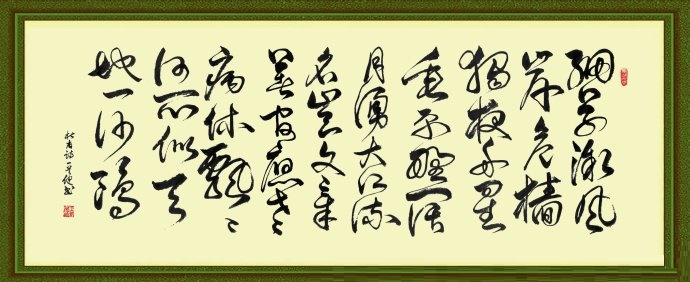 細草微風
岸危檣
獨夜舟星
垂平野闊
月湧大江流
名豈文章
著官應老
病休飄〻
何所似天
地一沙鷗
杜甫詩